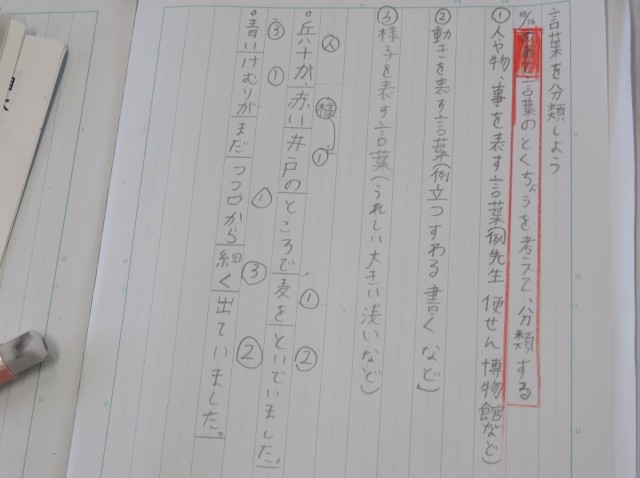 言葉を分類しよう
10/16 めあて 言葉のとくちょうを考えて、分類する
①人や物、事を表す言葉(例先生 便せん 博物館など)
②動きを表す言葉(例立つ すわる 書く など)
③様子を表す言葉(うれしい 大きい 浅いなど)
人 様 ① ① ②
。兵十が赤い井戸のところで麦をといでいました。
③ ① ① ③ ②
。青いけむりがまだつつ口から細く出ていました。